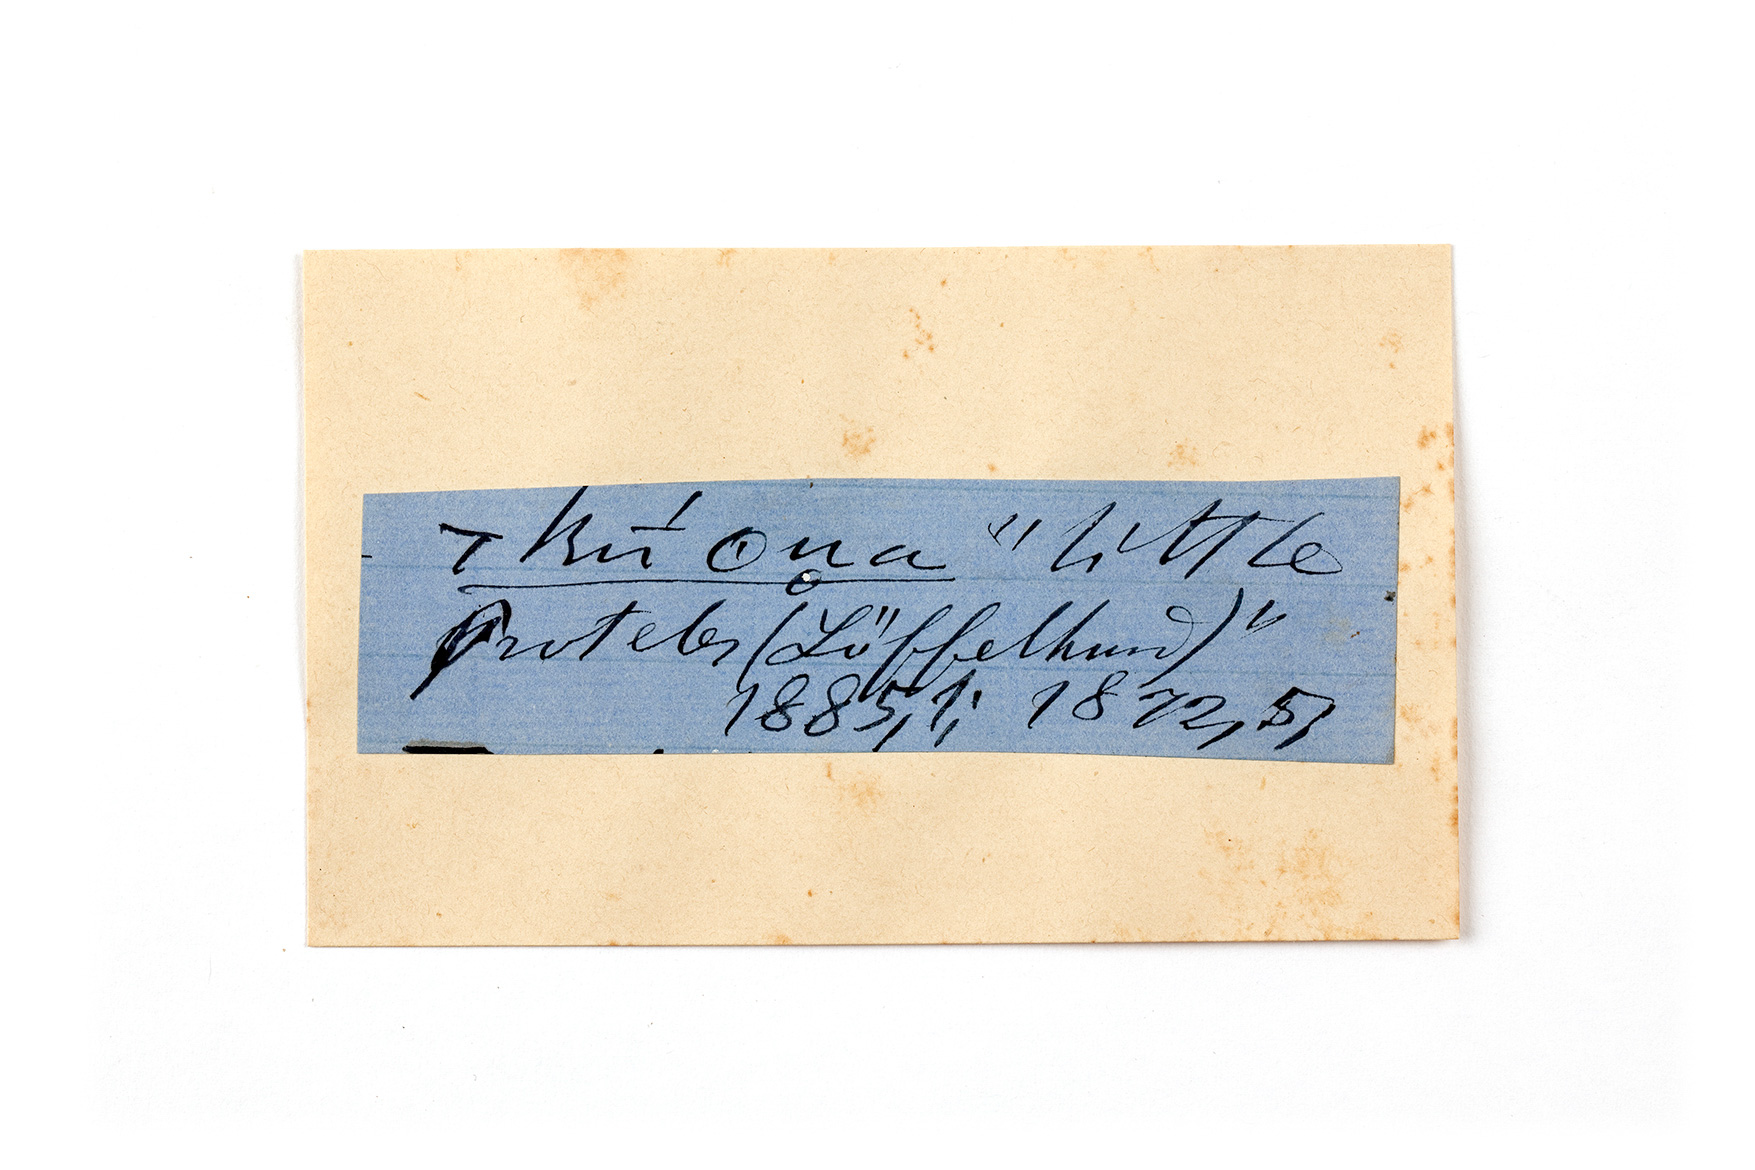 "little
Proteles (Löffelhund)"
1885,1; 1872,5,